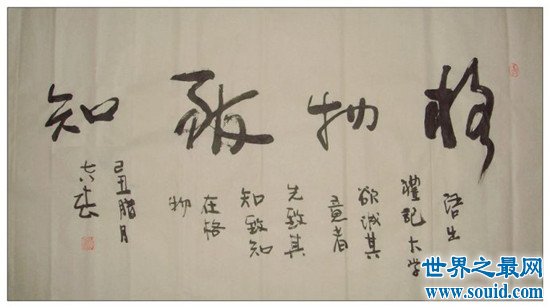 格物致知
语出
禮记大学
欲诚其
意者
先致其
知致知
在格
物
己丑腊月
世界之最网
www.souid.com